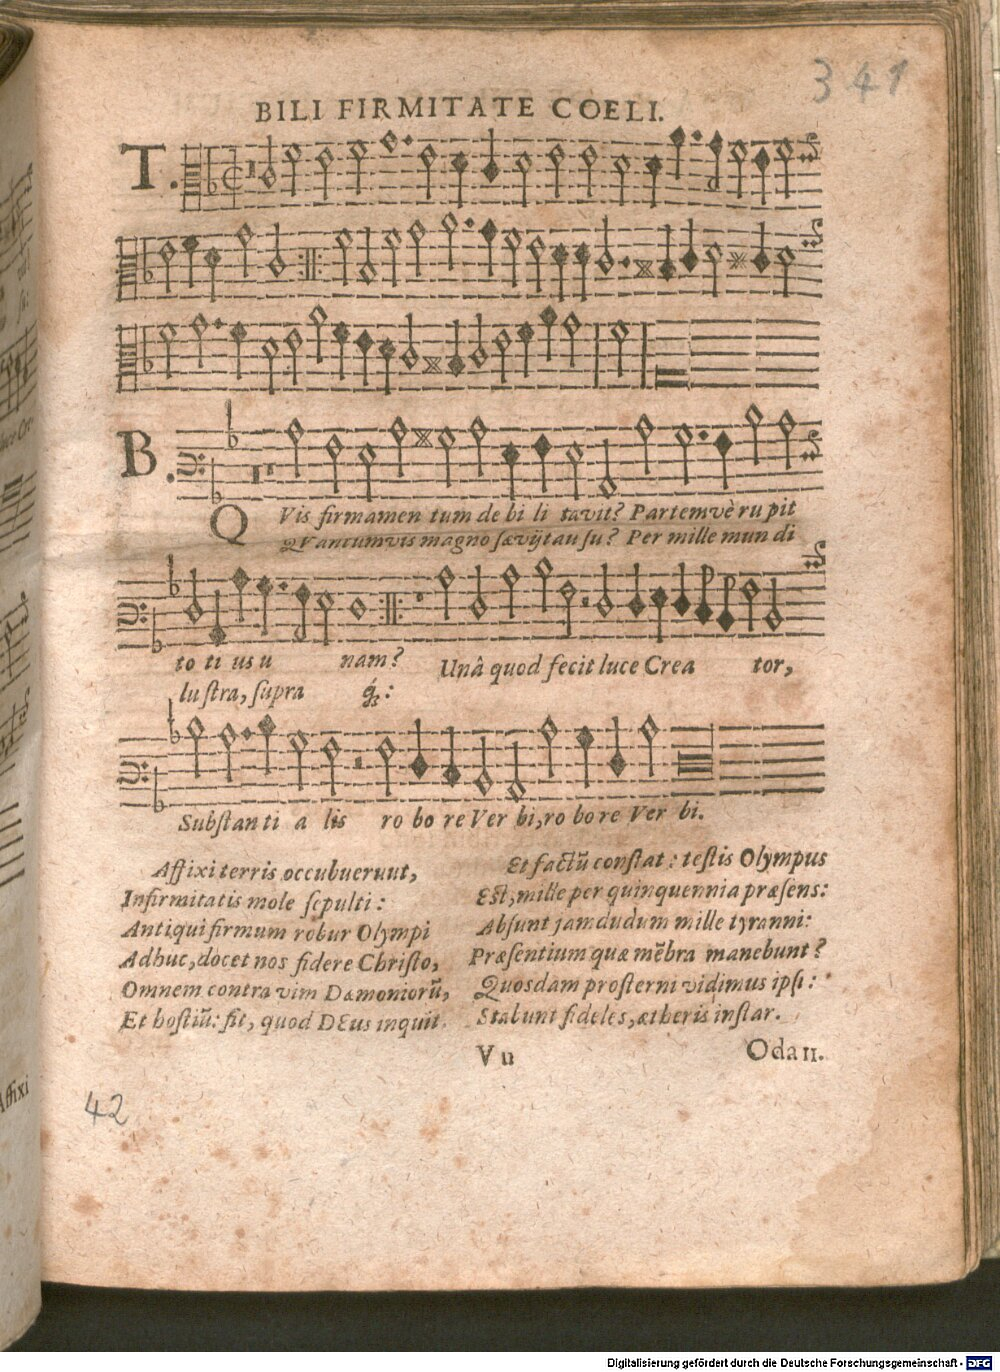 341
BILI FIRMITATE COELI.
T.
B.
QVis firmamen tum de bi li tavit? Partemvè ru pit
QVantumvis magno sævijt au su? Per mille mun di
to ti us u nam? Unâ quod fecit luce Crea tor,
lu stra, supra
Substan ti a lis ro bo re Ver bi, ro bo re Ver bi.
Affixi terris occubuerunt,
Infirmitatis mole sepulti:
Antiqui firmum robur Olympi
Adhuc, docet nos fidere Christo,
Omnem contra vim Dæmoniorũ,
Et hostiũ: fit, quod DEus inquit.
Et factũ constat: testis Olympus
Est, mille per quinquennia præsens:
Absunt jamdudum mille tyranni:
Præsentium quæ mẽbra manebunt?
Quosdam prosterni vidimus ipsi:
Stabunt fideles, ætheris instar.
V u
Oda II.
42
Affixi
Digitalisierung gefördert durch die Deutsche Forschungsgemeinschaft - DFG